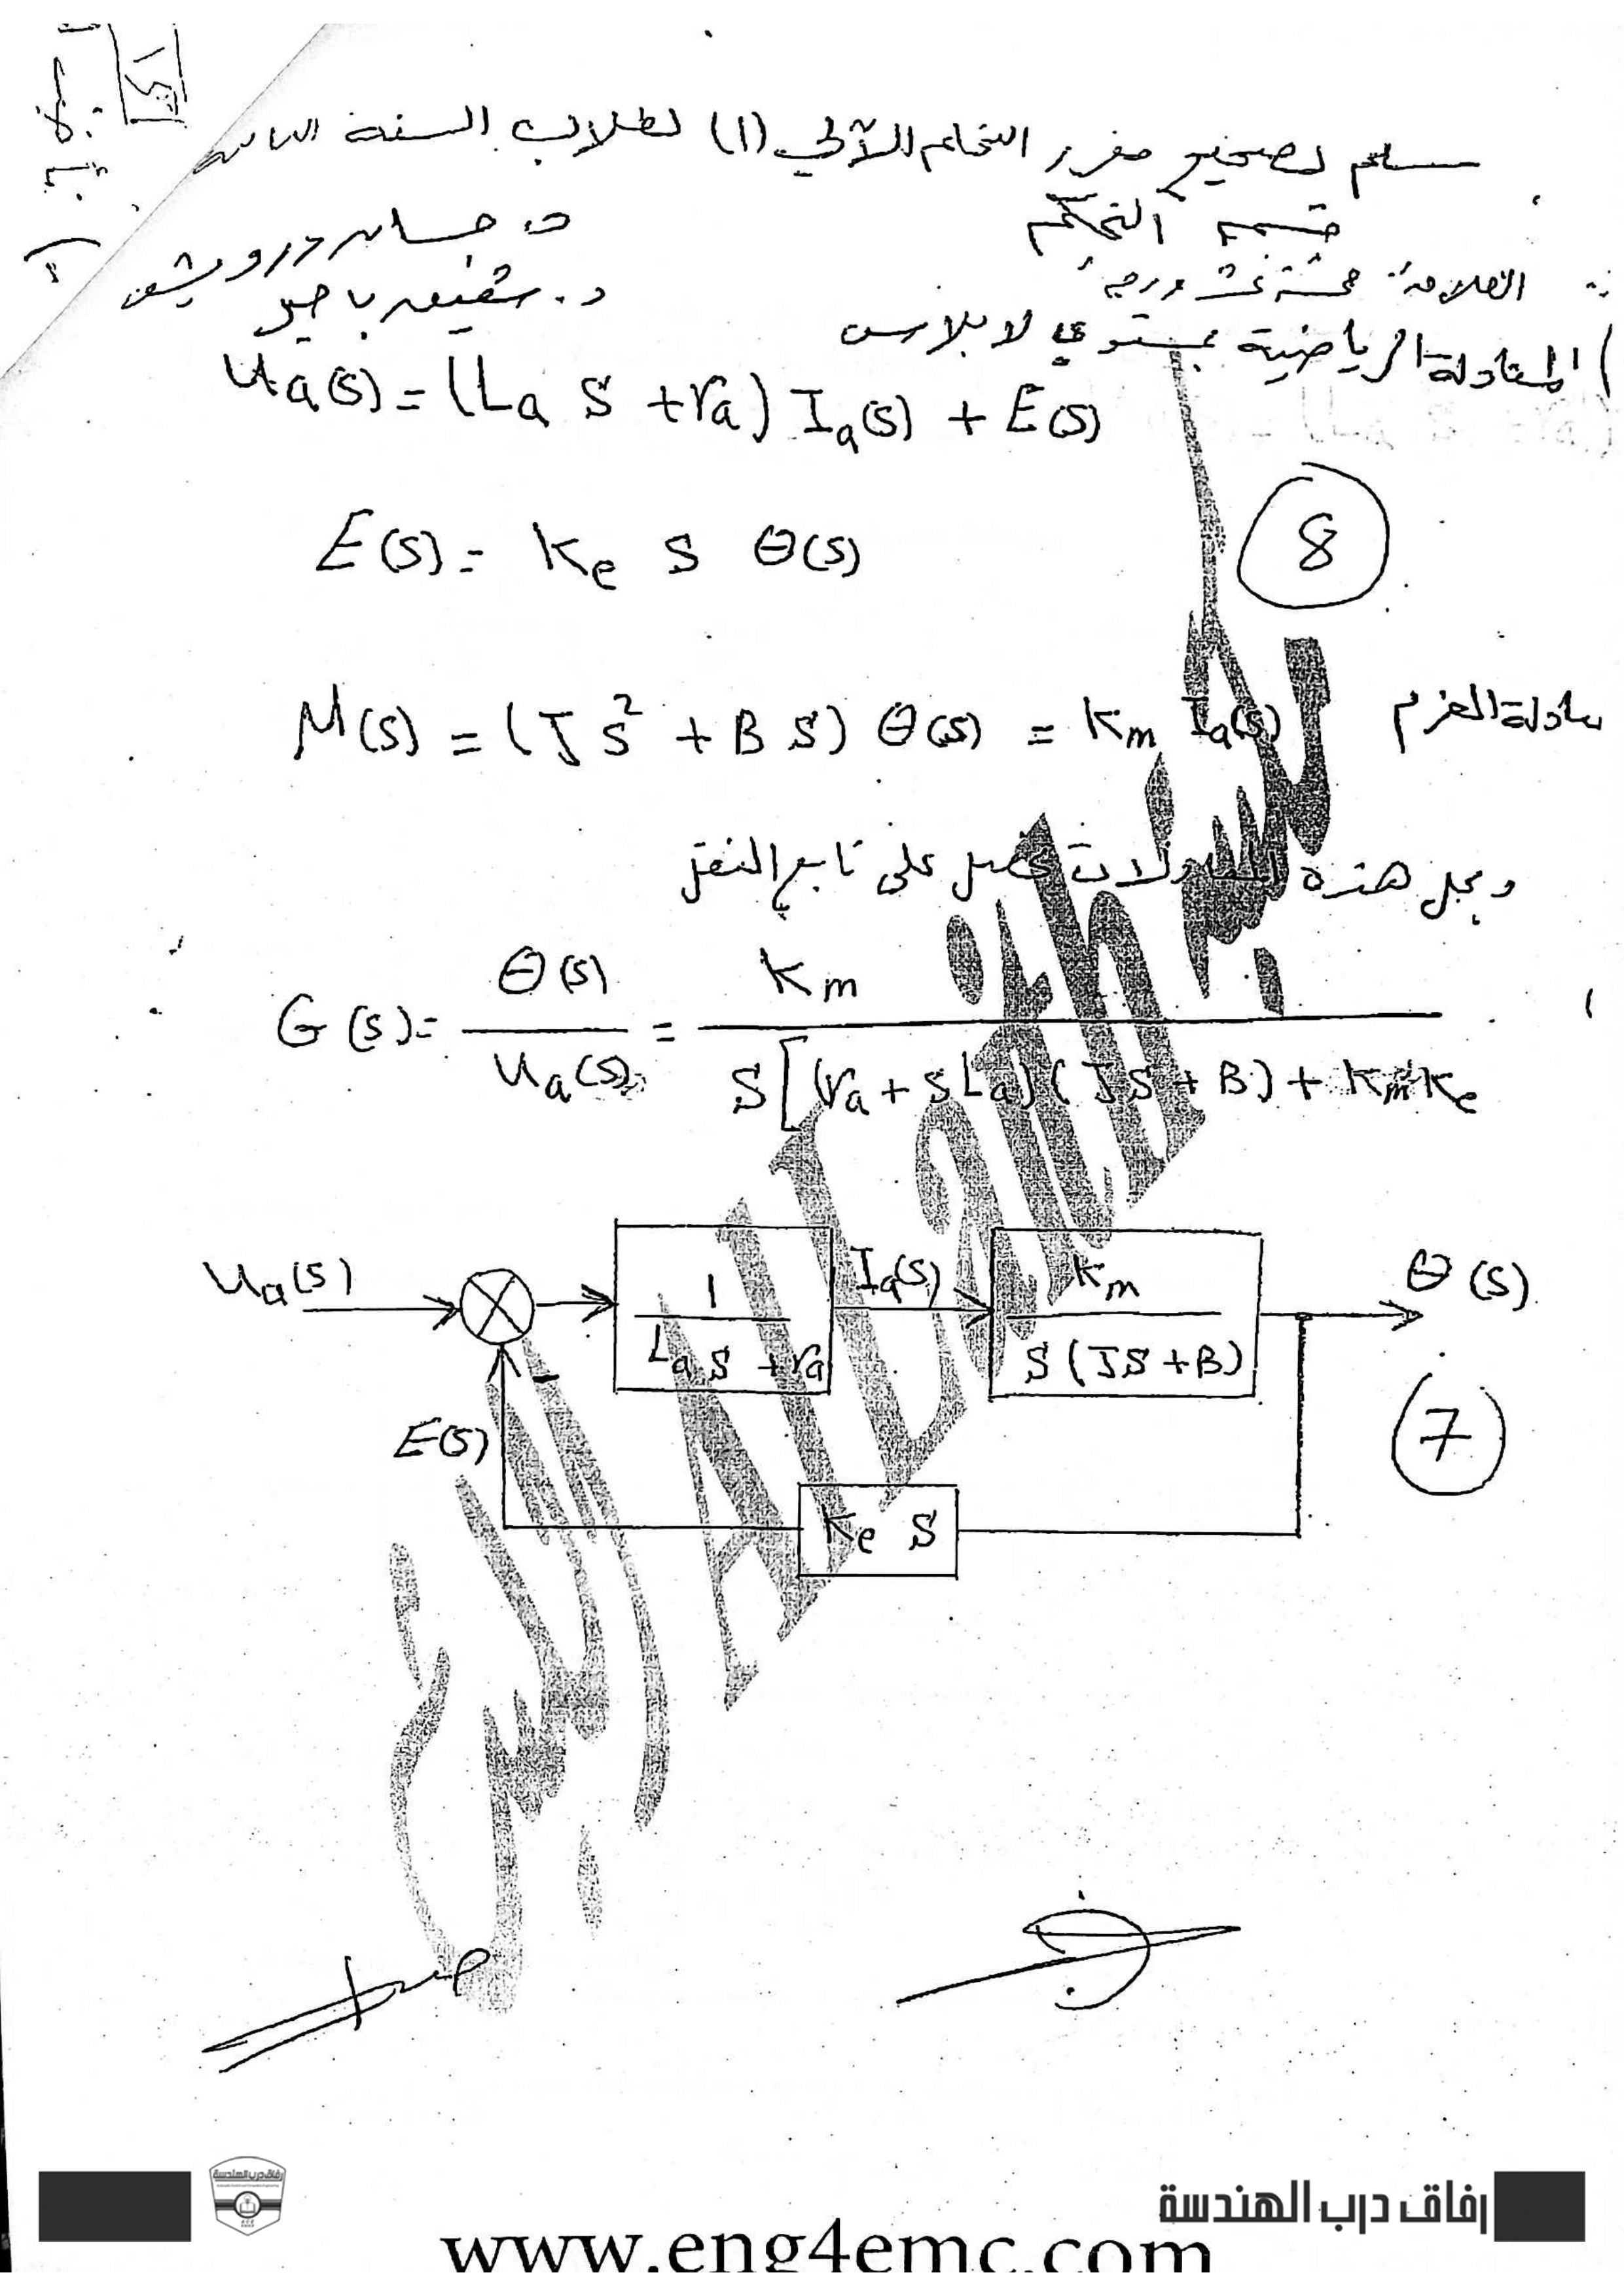 سلم تصحيح مقرر التحكم الآلي (1) لطلاب السنة
قسم التحكم
د. حسان درويش
العلامة: خمسة عشر درجة
د.
المعادلة الرياضية بمستوي لابلاس
Ua(s) = (La S + ra) Ia(s) + E(s)
8
E(s) = Ke S θ(s)
معادلة العزم
M(s) = (J S² + B S) θ(s) = Km Ia(s)
وبحل هذه المعادلات نحصل على تابع النقل
G(s) = θ(s) / Ua(s) = Km / S[(ra + sLa)(JS + B) + KmKe
Ua(s)
1 / La S + ra
Ia(s)
Km / S(JS + B)
θ(s)
-
E(s)
7
Ke S
ALLaith
رفاق درب الهندسة
www.eng4emc.com